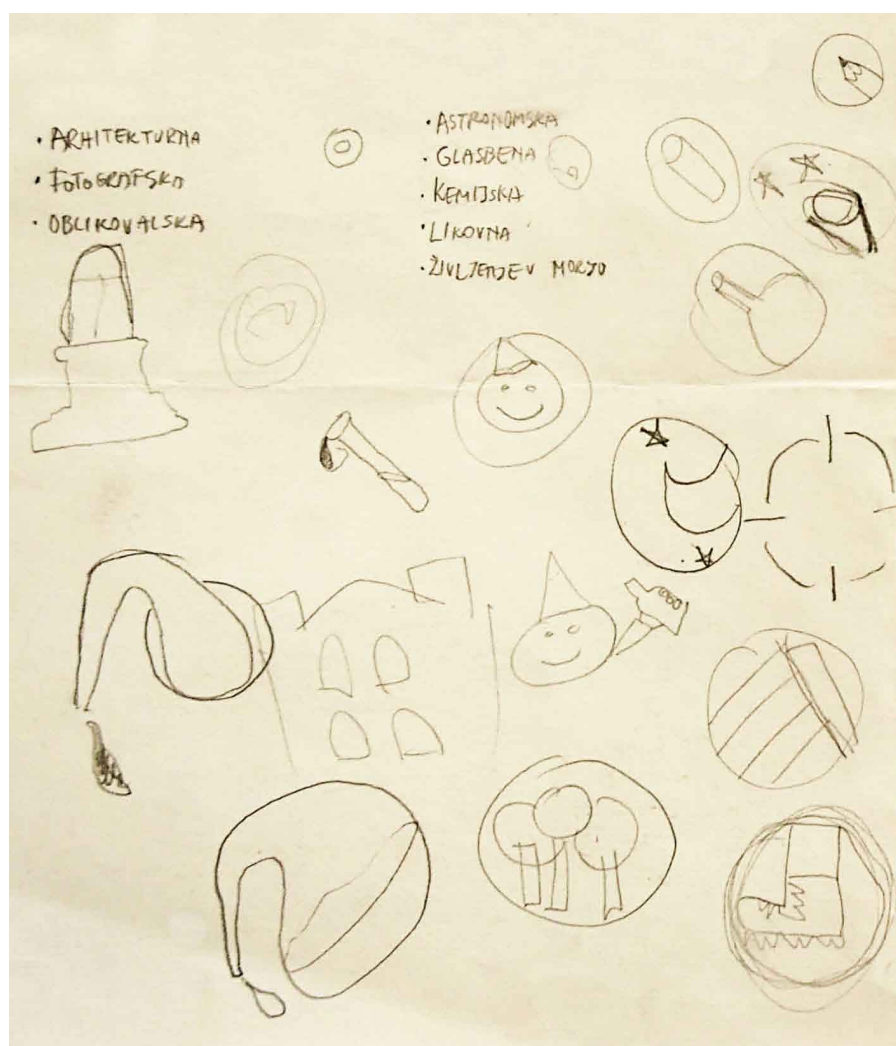 · ARHITEKTURNA
· FOTOGRAFSKA
· OBLIKOVALSKA
· ASTRONOMSKA
· GLASBENA
· KEMIJSKA
· LIKOVNA
· ŽIVLJENJE V MORJU